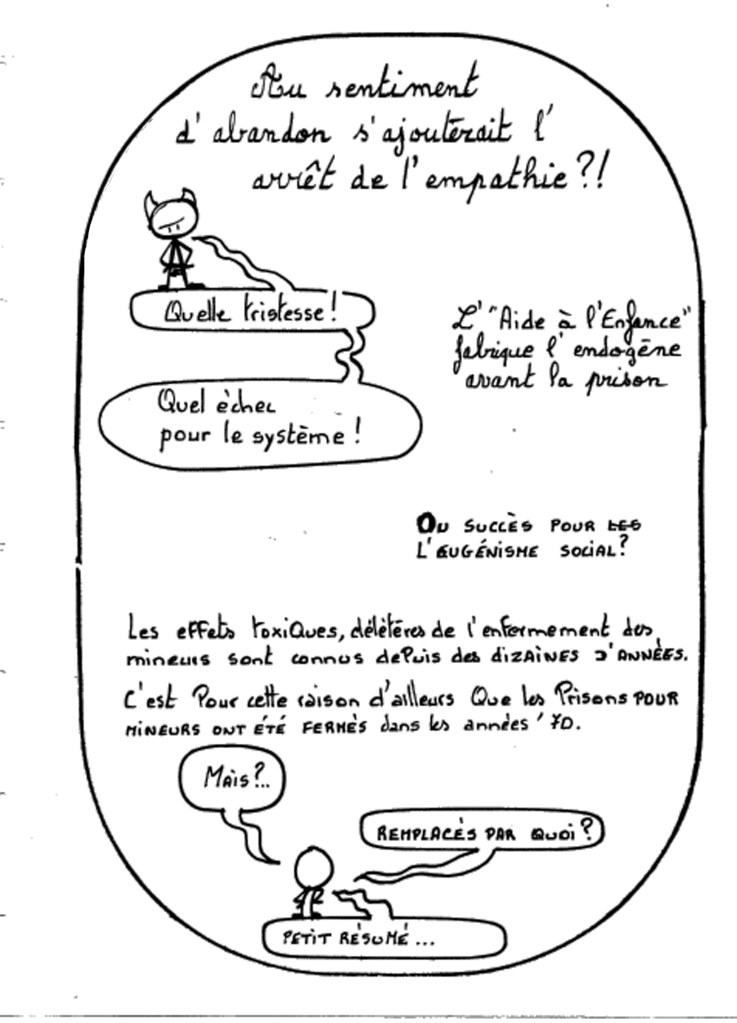 Au sentiment
d'abandon s'ajouterait l'
arrêt de l'empathie?!
Quelle tristesse!
L'"Aide à l'Enfance"
fabrique l'endogène
avant la prison
Quel échec
pour le système!
Ou succès pour les
l'eugénisme social?
Les effets toxiques, délétères de l'enfermement des
mineurs sont connus depuis des dizaines d'années.
C'est pour cette raison d'ailleurs que les prisons pour
mineurs ont été fermés dans les années '70.
Mais?..
Remplacés par quoi?
Petit résumé...